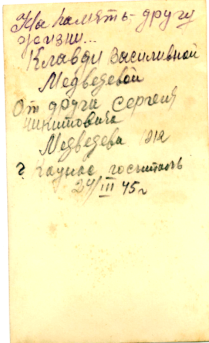 На память другу
жизни...
Клавди Василивной
Медведевой
От друга Сергея
Никитовича
Медведева
г Каунас госпиталь
24/III 45г